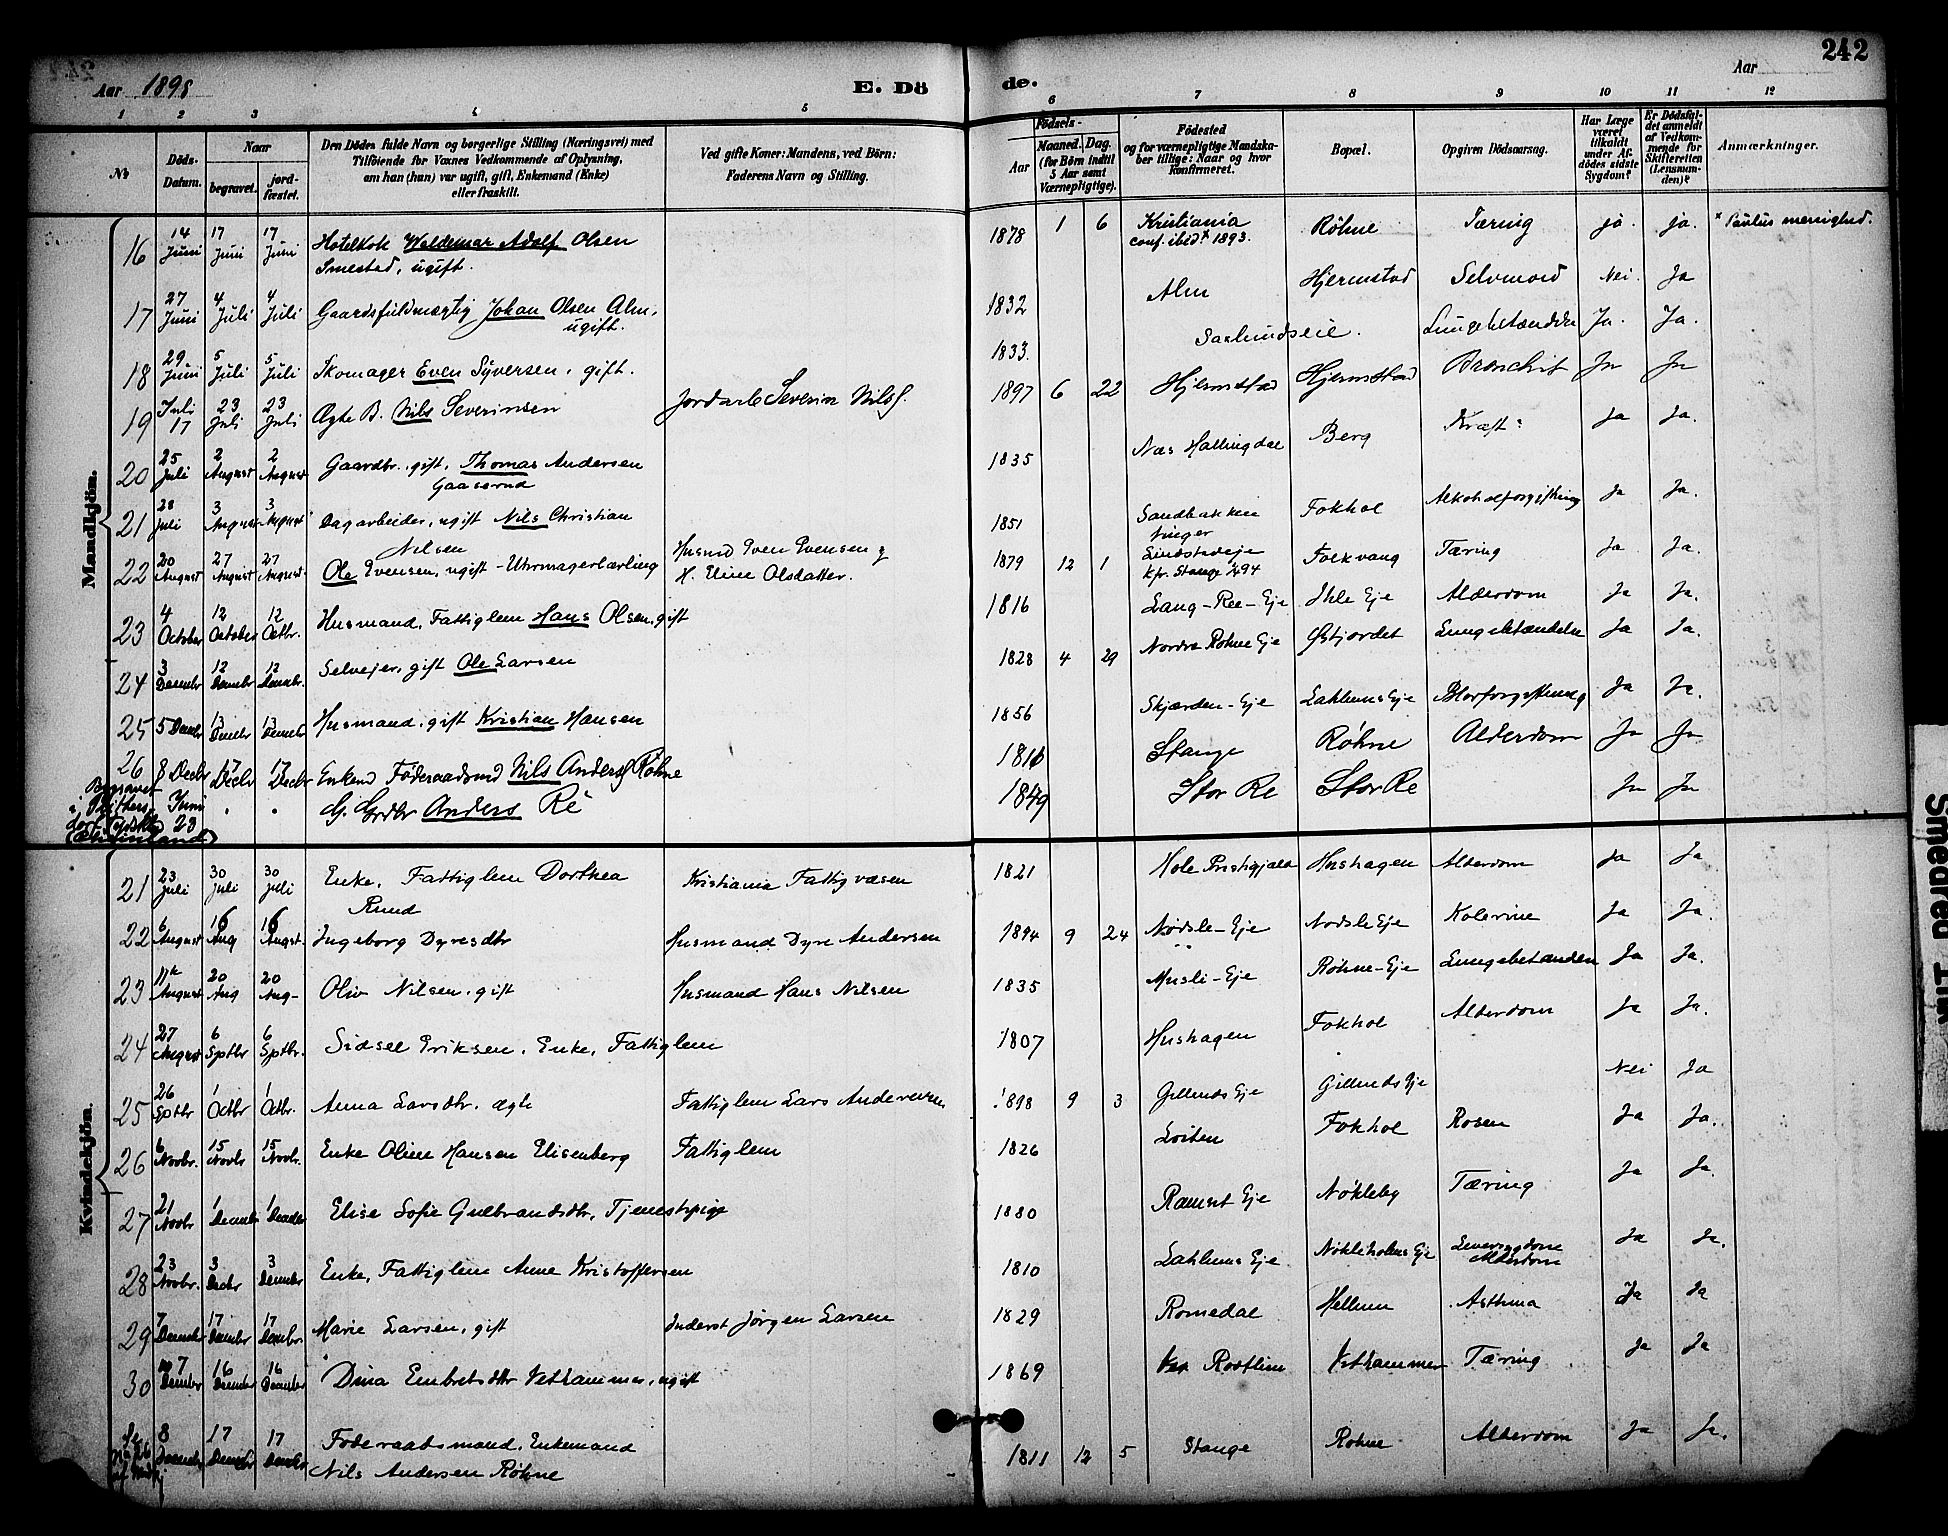 242
Aar 1898
E. Döde.
Aar
1 2 3 4 5 6 7 8 9 10 11 12
№
Döds-Datum.
Naar
begravet.
jord-fæstet.
Den Dödes fulde Navn og borgerlige Stilling (Næringsvei) med
Tilföiende for Voxnes Vedkommende af Oplysning,
om han (hun) var ugift, gift, Enkemand (Enke)
eller fraskilt.
Ved gifte Koner: Mandens, ved Börn:
Faderens Navn og Stilling.
Födsels-
Aar
Maaned. Dag.
(for Börn indtil
5 Aar samt
Værnepligtige).
Födested
og for værnepligtige Mandska-
ber tillige: Naar og hvor
konfirmeret.
Bopæl.
Opgiven Dödsaarsag.
Har Læge
været
tilkaldt
under Af-
dödes sidste
Sygdom?
Er Dödsfal-
det anmeldt
af Vedkom-
mende for
Skifteretten
(Lensman-
den)?
Anmærkninger.
Mandkjön.
16 14 Juni 17 Juni 17 Juni Hotelkok Waldemar Adolf Olsen 1878 1 6 Kristiania Röhne Tæring ja. ja. × Paulus menighed.
Smestad, ugift. conf. ibid.× 1893.
17 27 Juni 4 Juli 4 Juli Gaardsfuldmægtig Johan Olsen Alm, 1832 Alm Hjermstad Selvmord Nei. Ja
ugift.
18 29 Juni 5 Juli 5 Juli Skomager Even Syversen, gift. 1833. Saxlundseie. Ja. Ja.
19 Juli 17 23 Juli 23 Juli Ægte B. Nils Severinsen Jordarb. Severin Nilss. 1897 6 22 Hjermstad Hjermstad Bronchit Ja Ja
20 25 Juli 2 August 2 August Gaardbr. gift, Thomas Andersen 1835 Næs Hallingdal Berg Kræft Ja Ja.
Gaaserud
21 28 Juli 3 August 3 August Dagarbeider, ugift Nils Christian 1851 Sandbakken Fokhol Alkoholforgiftning Ja Ja.
Nilsen
22 20 August 27 August 27 August Ole Evensen, ugift - Uhrmagerlærling Husmd Even Evensen & 1879 12 1 Lindstadeje Folkvang Tæring Ja Ja.
H. Eline Olsdatter. Kfr. Stange 94
23 4 October 12 October 12 Octbr. Husmand, Fattiglem Hans Olsen, gift 1816 Lang-Ree-Eje Ihle Eje Alderdom Ja Ja.
24 3 Decembr 12 Decembr 12 Decembr. Selvejer, gift Ole Larsen 1828 4 29 Nordre Röhne Eje Østjordet Lungebetændelse Ja Ja.
25 5 Decembr 13 Decembr 13 Decembr Husmand, gift Kristian Hansen 1856 Skjærden-Eje Lahlums Eje Ja Ja.
26 8 Decbr 17 Decbr 17 Decbr Enkemd Föderaadsmd Nils Anderss Röhne 1811 Stange Röhne Alderdom Ja Ja
Begravet
i
Juni 23 " " G. Grdbr Anders Re 1849 Stor Re Stor Re Ja Ja
Kvindekjön.
21 23 Juli 30 Juli 30 Juli Enke, Fattiglem Dorthea Kristiania Fattigvæsen 1821 Hole Prestegjeld Hushagen Alderdom Ja Ja
Ruud
22 6 August 16 Aug 16 August. Ingeborg Dyresdtr Husmand Dyre Andersen 1894 9 24 Nordsle-Eje Nordsle Eje Kolerine Ja Ja.
23 11te August 20 Aug 20 Aug- Oliv Nilsen, gift Husmand Hans Nilsen 1835 Musli-Eje Röhne-Eje Lungebetænden Ja Ja.
24 27 August 6 Sptbr 6 Sptbr. Sidsel Eriksen, Enke, Fattiglem 1807 Hushagen Fokhol Alderdom Ja Ja.
25 26 Sptbr 1 Octbr 1 Octbr. Anna Larsdtr. ægte Fattiglem Lars Andersen 1898 9 3 Gillunds Eje Gillunds Eje Nei Ja
26 6 Novbr. 15 Novbr 15 Novbr. Enke Oline Hansen Elisenberg Fattiglem 1826 Löiten Fokhol Rosen Ja Ja.
27 21 Novbr 1 Decembr 1 Decembr Elise Sofie Gulbrandsdtr, Tjenestepige 1880 Ramset Eje Nökleby Tæring Ja Ja.
28 23 Novbr. 3 Decbr 3 Decembr Enke, Fattiglem Anne Kristoffersen 1810 Lahlums Eje Nökleholms Eje Leversygdom Ja Ja.
Alderdom
29 7 Decembr 17 Decembr 17 Decembr. Marie Larsen, gift Inderst Jörgen Larsen 1829 Romedal Hellum Asthma Ja Ja
30 7 Decembr 16 Decembr 16 Decembr Dina Embretsdtr Vethammer, ugift 1869 Vethammer Tæring Ja Ja
Se
No 26
8 Decembr 17 Decembr 17 Decembr Föderaadsmand, Enkemand 1811 12 5 Stange Röhne Alderdom Ja Ja.
Nils Andersen Röhne
Smedrud Lik